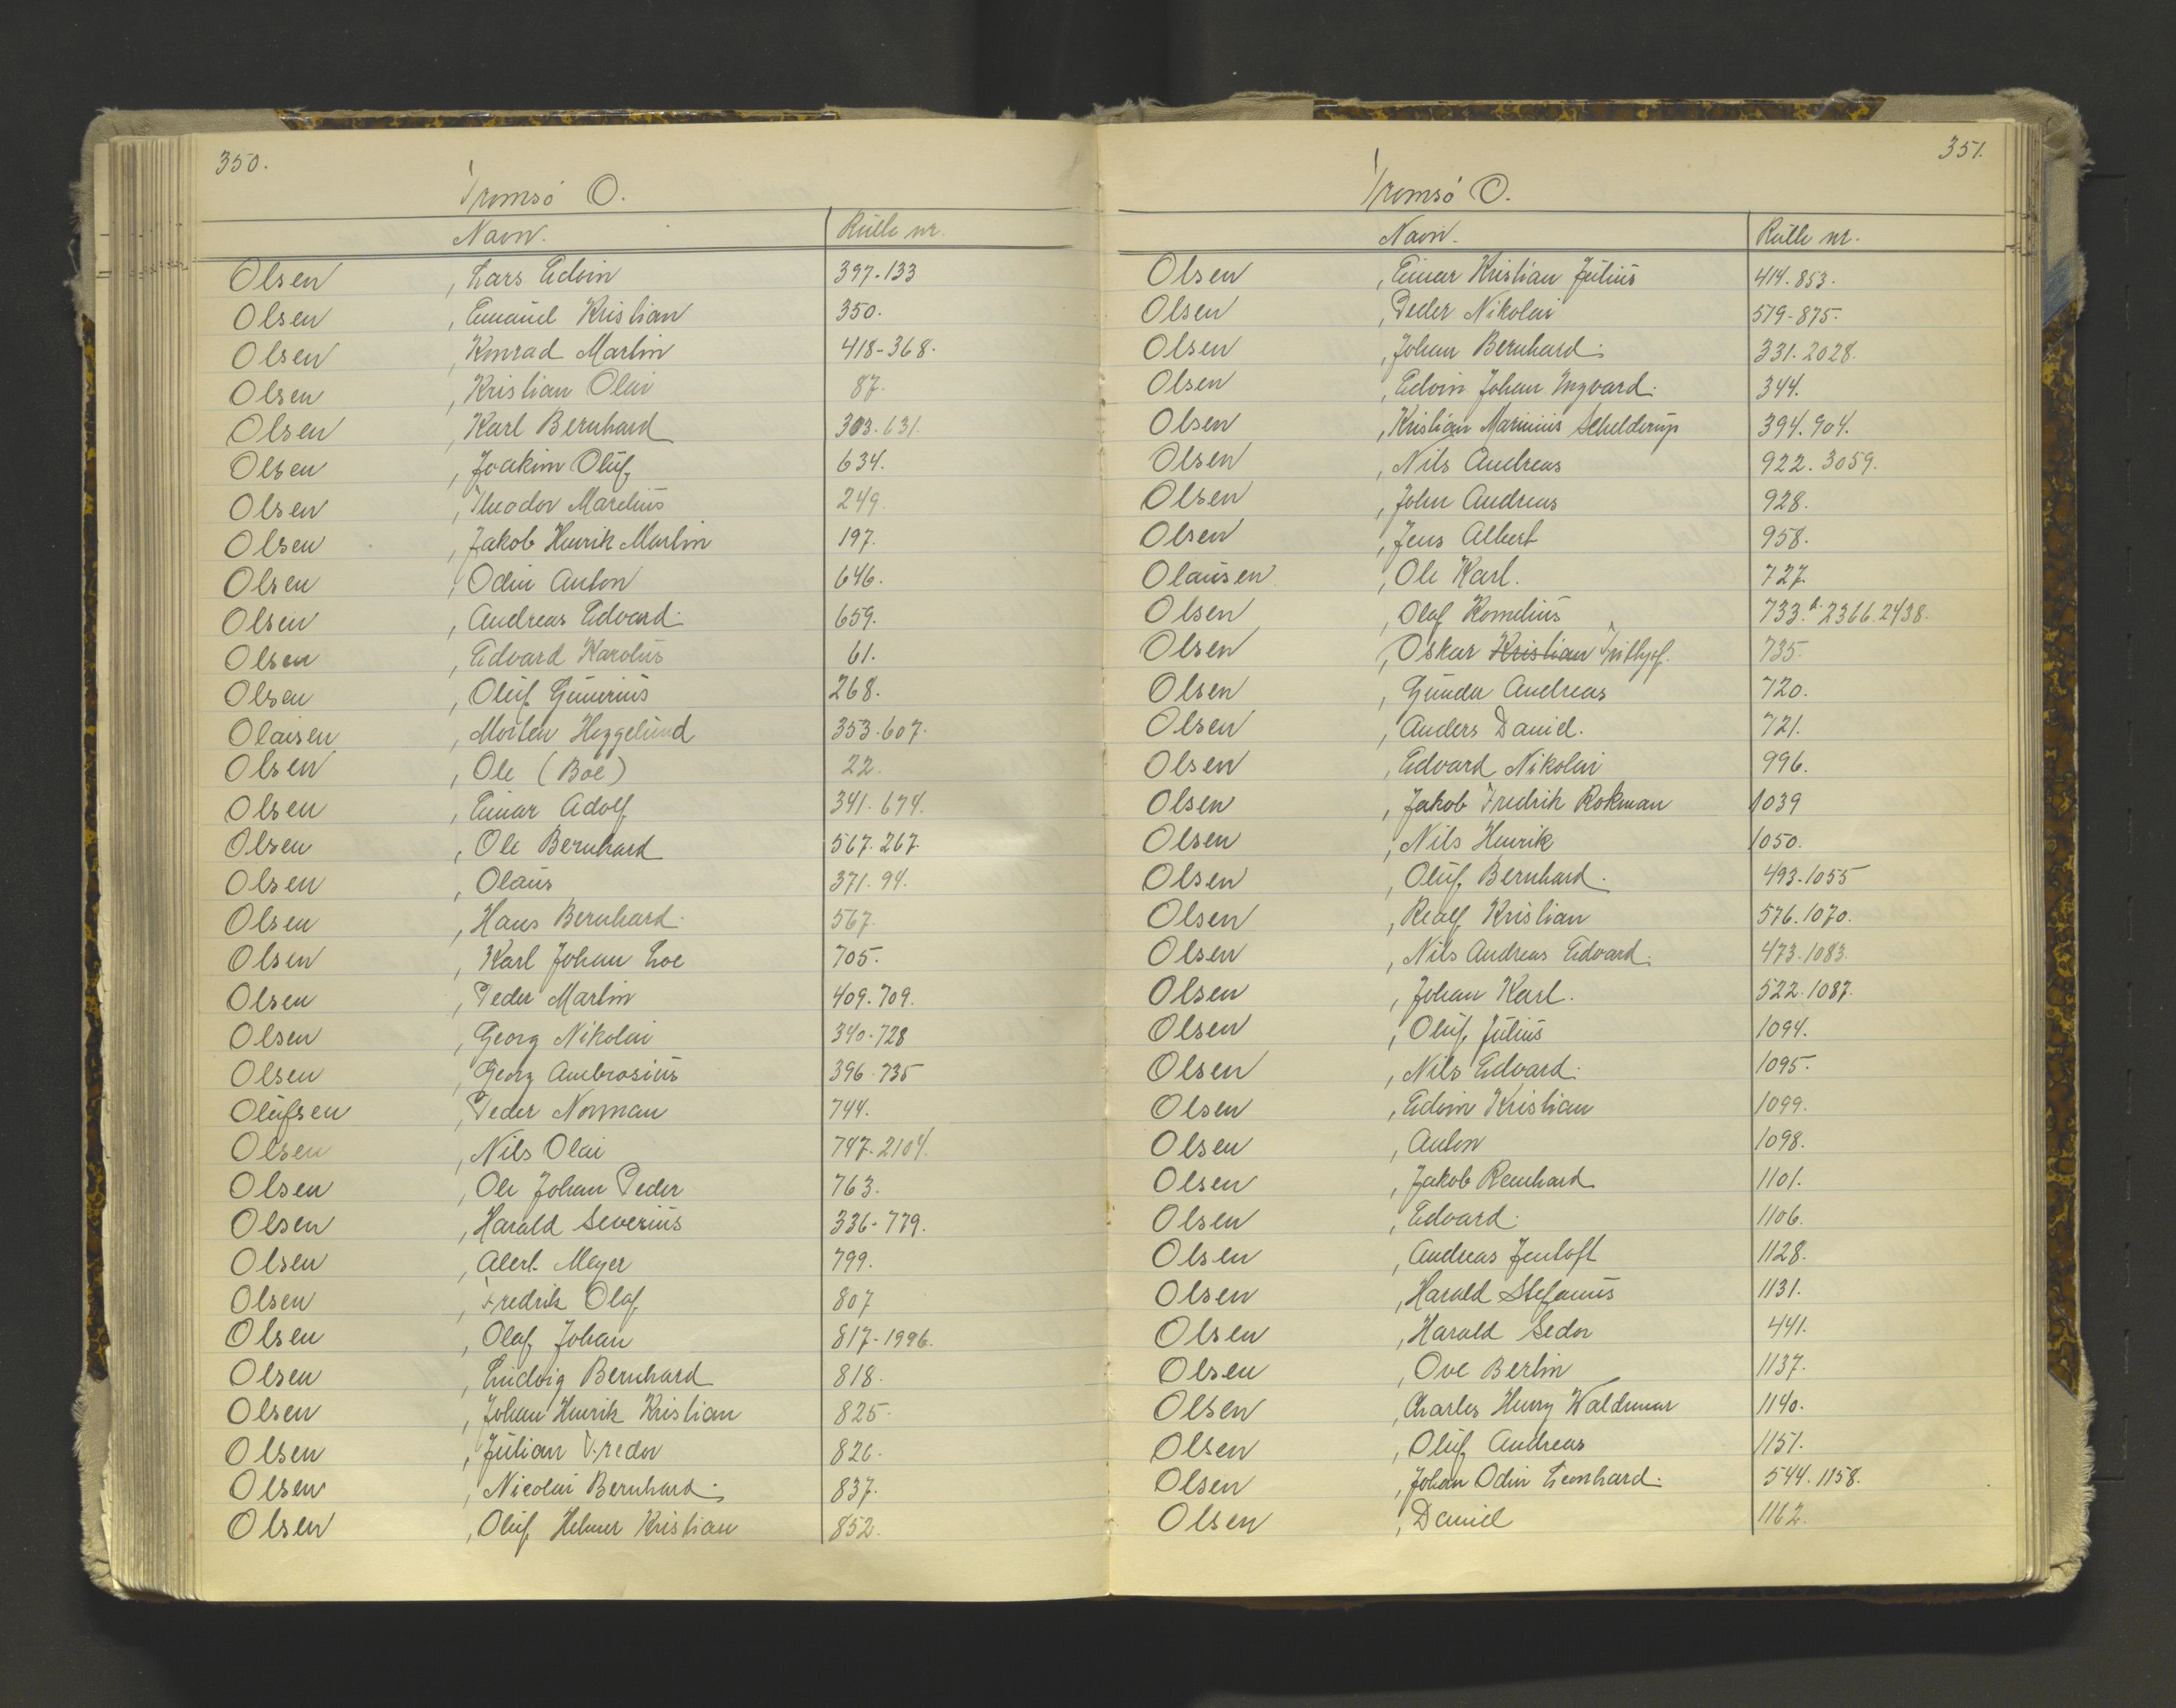 350.
Tromsø O.
Navn. Rulle nr.
Olsen , Lars Edvin 397-133
Olsen , Emanuel Kristian 350.
Olsen , Konrad Martin 418-368.
Olsen , Kristian Olai 87.
Olsen , Karl Bernhard 303.631.
Olsen , Joakim Oluf 634.
Olsen , Theodor Marelius 249.
Olsen , Jakob Henrik Martin 197.
Olsen , Odin Anton 646.
Olsen , Andreas Edvard. 659.
Olsen , Edvard Karolus 61.
Olsen , Oluf Gunerius 268.
Olaisen , Morten Heggelund 353.607.
Olsen , Ole (Boe) 22.
Olsen , Einar Adolf 341.674.
Olsen , Ole Bernhard 567.267.
Olsen , Olaus 371.94.
Olsen , Hans Bernhard. 567.
Olsen , Karl Johan Loe 705.
Olsen , Peder Martin 409.709.
Olsen , Georg Nikolai 340.728
Olsen , Georg Ambrosius 396.735
Olufsen , Peder Norman 744.
Olsen , Nils Olai 747.2104.
Olsen , Ole Johan Peder 763.
Olsen , Harald Severius 336-779.
Olsen , Alert Meyer 799.
Olsen , Fredrik Olaf 807
Olsen , Olaf Johan 817-1996.
Olsen , Ludvig Bernhard 818.
Olsen , Johan Henrik Kristian 825.
Olsen , Julian Fredor 826.
Olsen , Nicolai Bernhard. 837.
Olsen , Oluf Helmer Kristian 852.
351.
Tromsø O.
Navn. Rulle nr.
Olsen , Einar Kristian Julius 414.853.
Olsen , Peder Nikolai 579-875.
Olsen , Johan Bernhard. 331.2028.
Olsen , Edvin Johan Ingvard. 344.
Olsen , Kristian Marinius Schelderup 394.904.
Olsen , Nils Andreas 922.3059.
Olsen , John Andreas 928.
Olsen , Jens Albert 958.
Olausen , Ole Karl. 727.
Olsen , Olaf Kornelius 733. 2366.2438.
Olsen , Oskar Kristian Frithjof. 735.
Olsen , Gunder Andreas 720.
Olsen , Anders Daniel. 721.
Olsen , Edvard Nikolai 996.
Olsen , Jakob Fredrik Rokman 1039
Olsen , Nils Henrik 1050.
Olsen , Oluf Bernhard. 493.1055
Olsen , Realf Kristian 576.1070.
Olsen , Nils Andreas Edvard. 473.1083.
Olsen , Johan Karl. 522.1087.
Olsen , Oluf Julius 1094.
Olsen , Nils Edvard. 1095.
Olsen , Edvin Kristian 1099.
Olsen , Anton 1098.
Olsen , Jakob Renhard 1101.
Olsen , Edvard. 1106.
Olsen , Andreas Jentoft 1128.
Olsen , Harald Stefanus 1131.
Olsen , Harald Sedor 441.
Olsen , Ove Bertin 1137.
Olsen , Charles Henry Waldemar 1140.
Olsen , Oluf Andreas 1151.
Olsen , Johan Odin Leonhard. 544.1158.
Olsen , Daniel 1162.